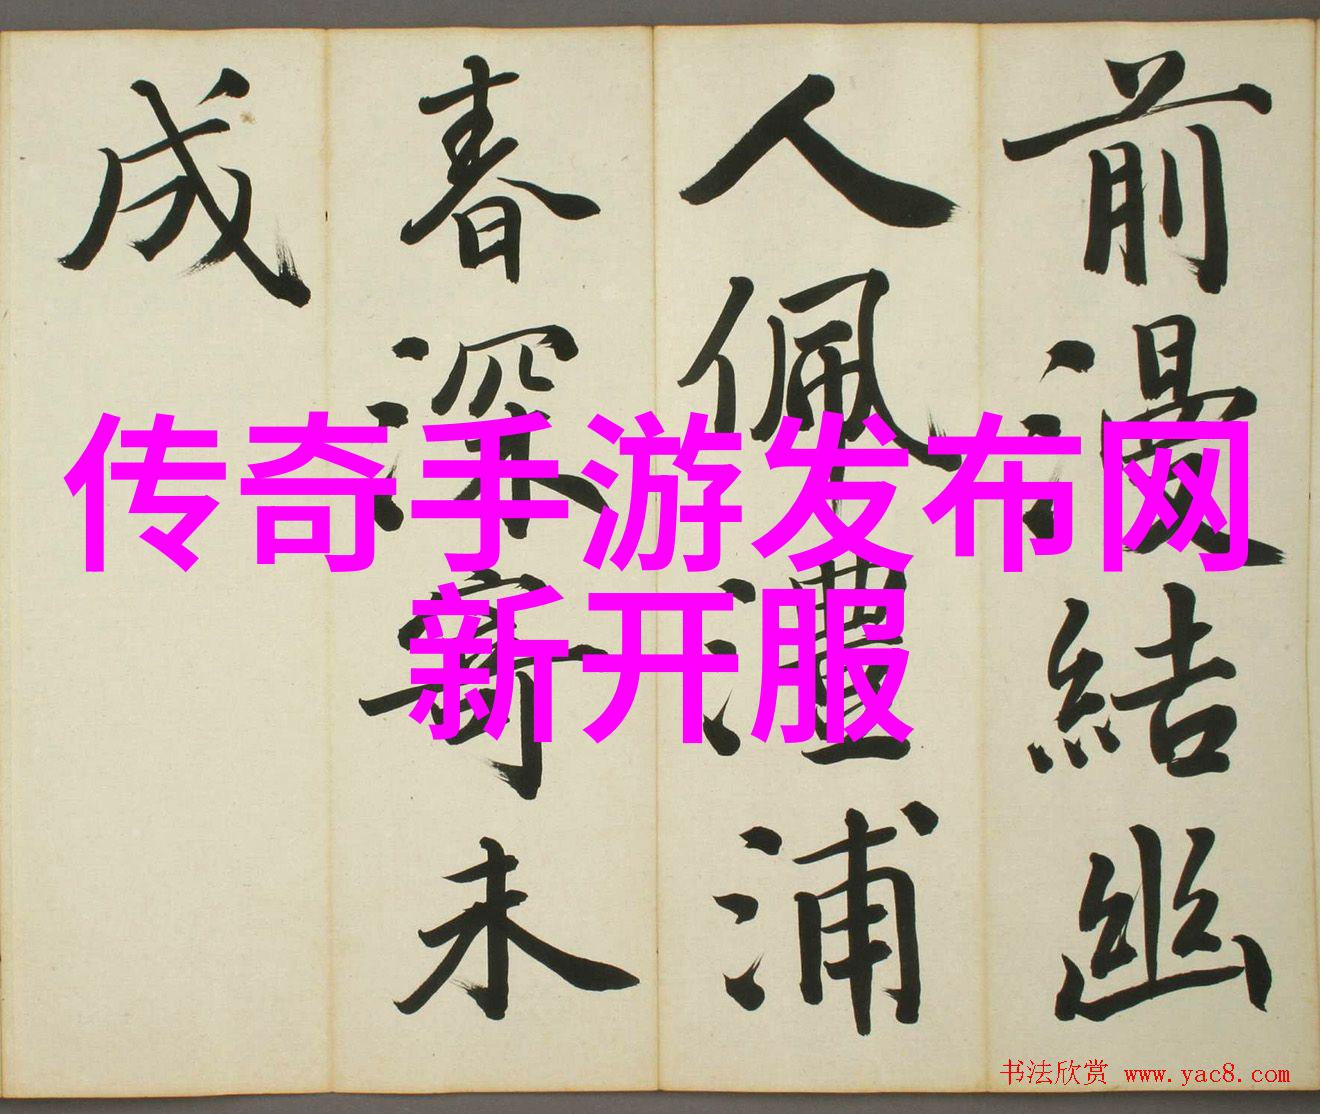 前漫結幽
人佩澧浦
春深寄未
成
传奇手游发布网
新开服
书法欣赏 www.yac8.com